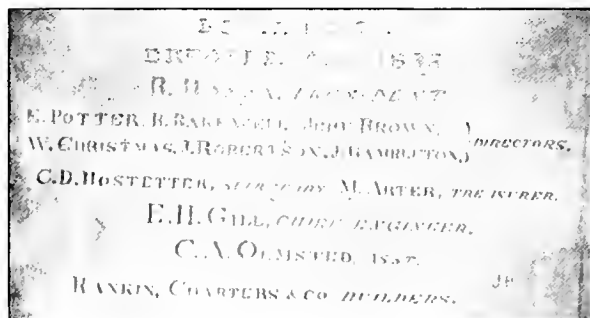 R. HANNA, PRESIDENT
E. POTTER, B. BAKEWELL, JOHN BROWN,
W. CHRISTMAS, J. ROBERTSON, J. HAMBLETON, } DIRECTORS.
C.D. HOSTETTER, SECRETARY M. ARTER, TREASURER.
E.H. GILL, CHIEF ENGINEER.
C.A. OLMSTED, 1837.
RANKIN, CHARTERS & CO BUILDERS.